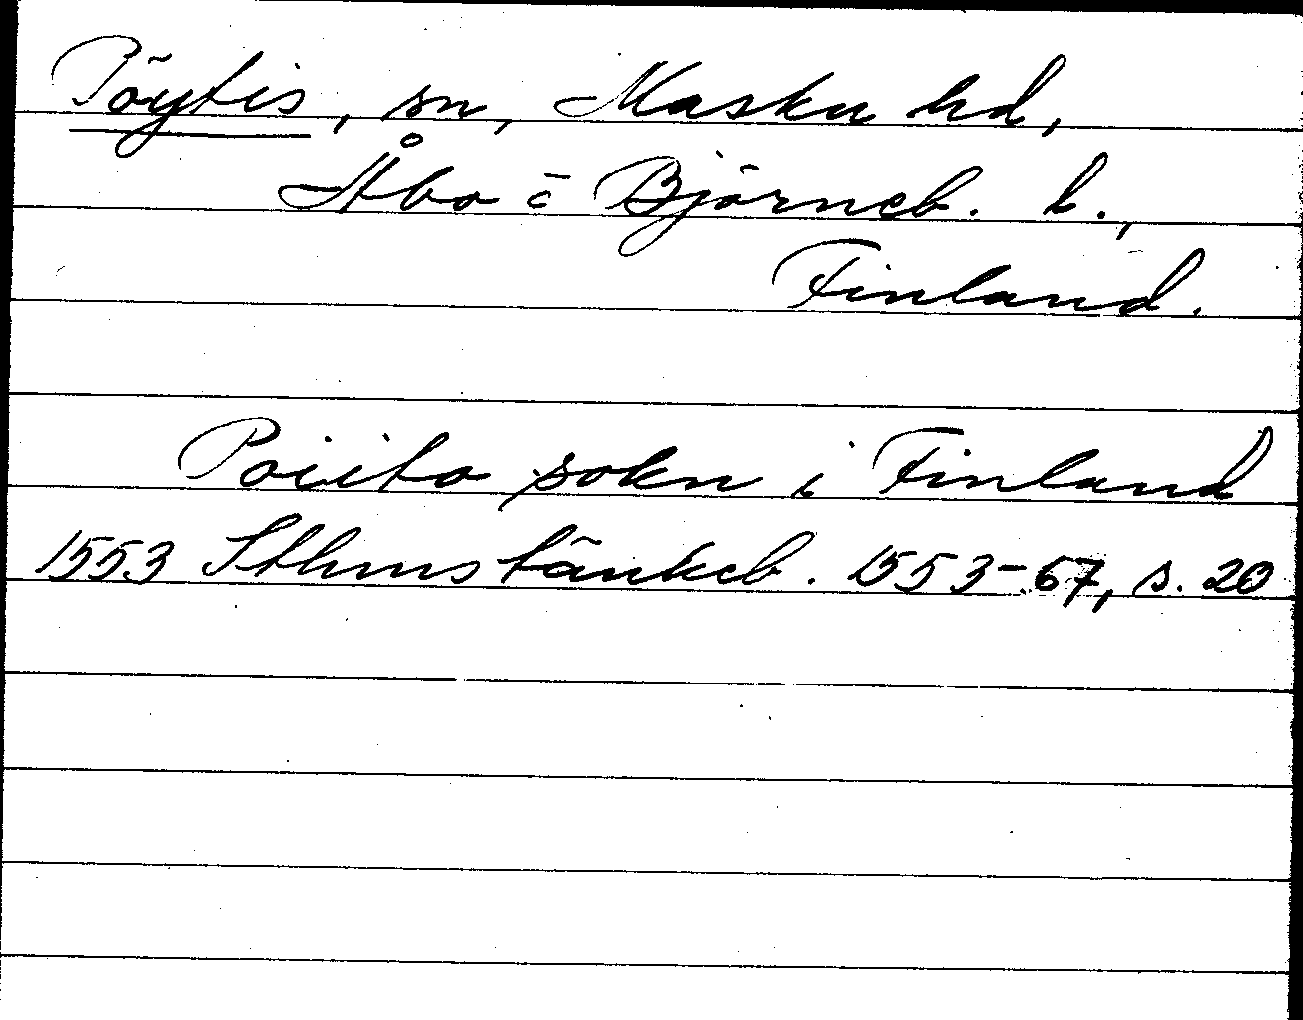 Pöytis, sn, Masku hd,
Åbo ö Björneb. l.,
Finland.
Poiito sokn i Finland
1553 Sthms tänkeb. 1553-67, s. 20